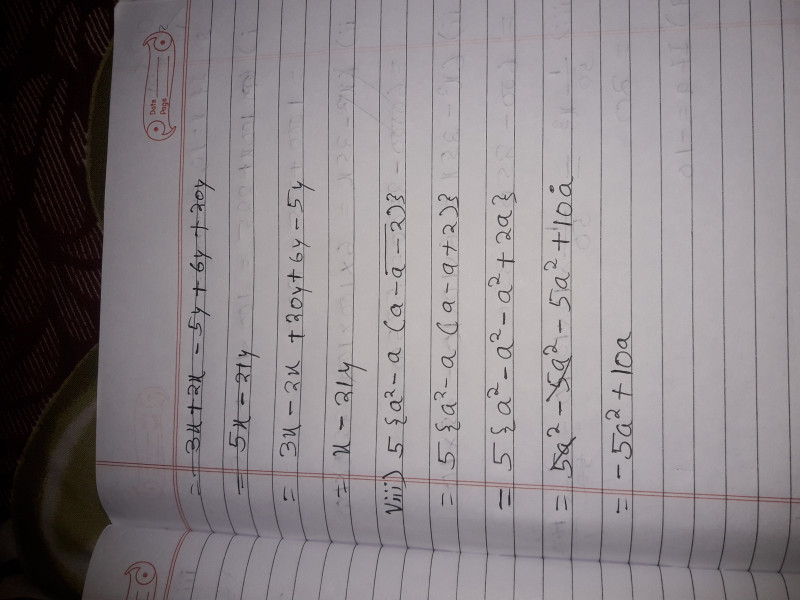 Date
Page
= 3x + 2x - 5y + 6y + 20y
= 5x - 21y
= 3x - 2x + 20y + 6y - 5y
= x - 21y
viii) 5 {a² - a (a - a̅ ̅-̅ ̅2̅)}
= 5 {a² - a (a - a + 2)}
= 5 {a² - a² - a² + 2a}
= 5a² - 5a² - 5a² + 10a
= - 5a² + 10a